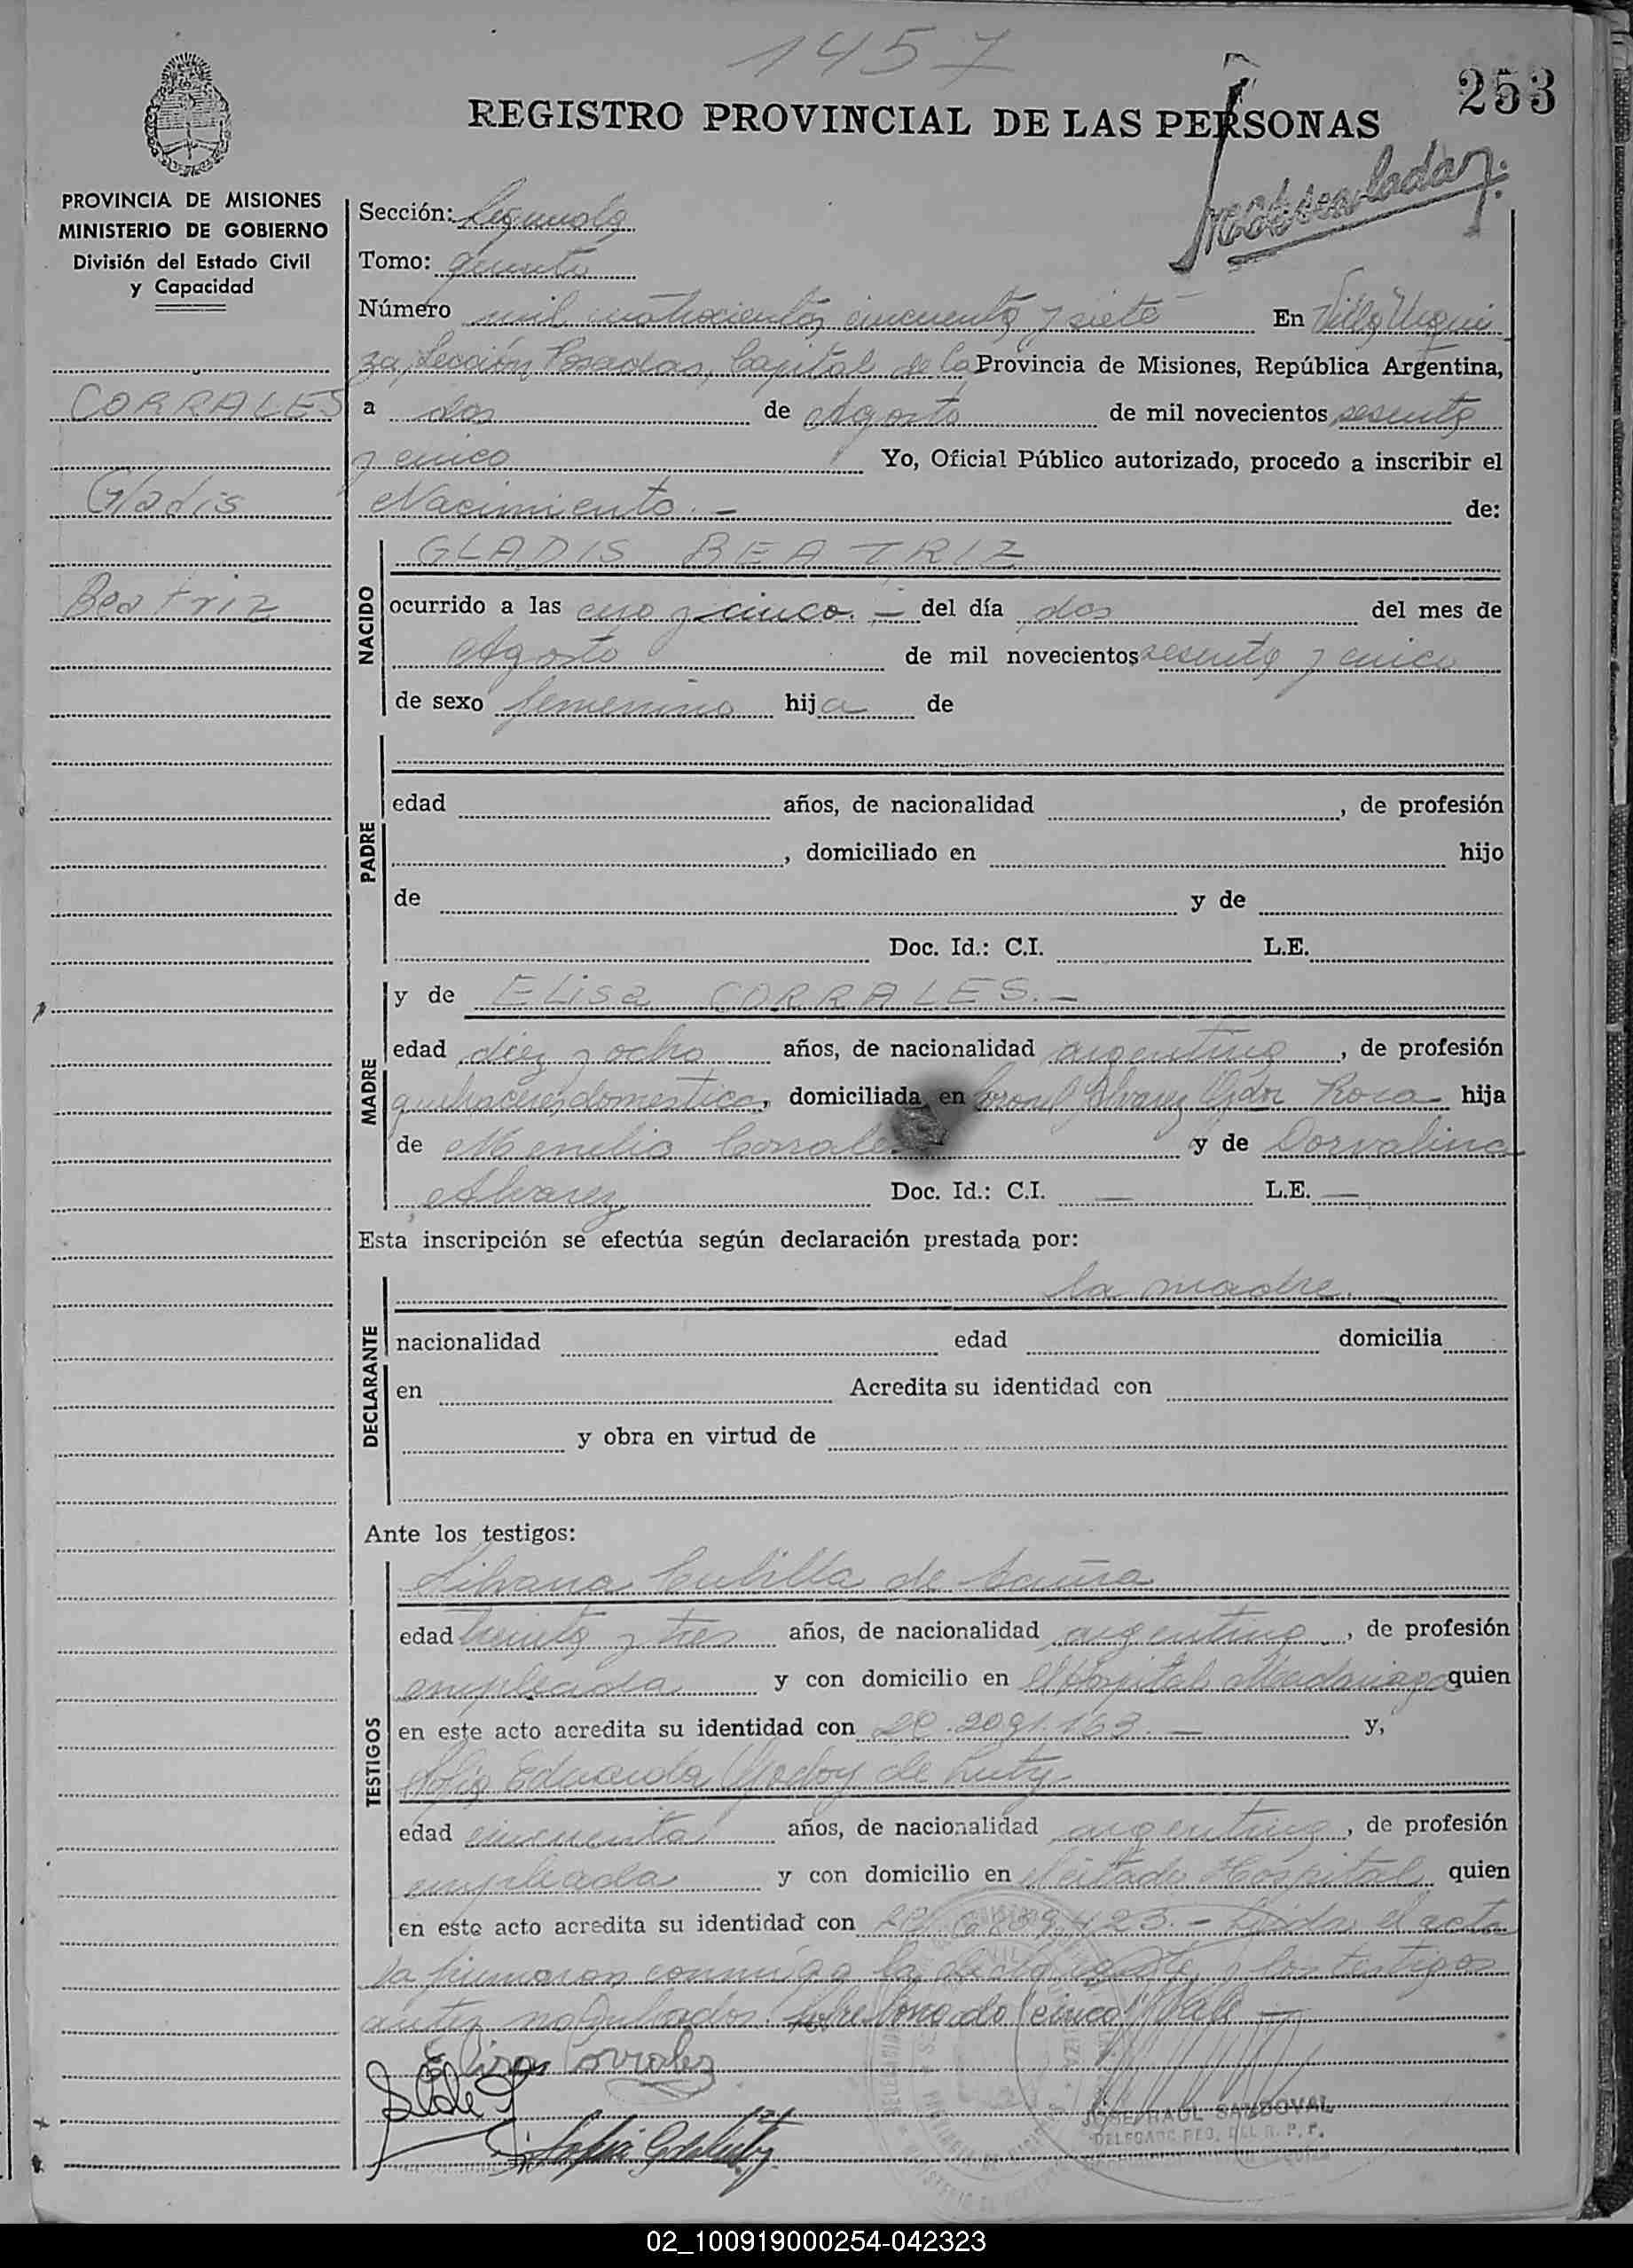 1457
253
REGISTRO PROVINCIAL DE LAS PERSONAS
PROVINCIA DE MISIONES
MINISTERIO DE GOBIERNO
División del Estado Civil
y Capacidad
CORRALES
Gladis
Beatriz
Sección: Segunda
Tomo: quinto
Número mil cuatrocientos cincuenta y siete En Villa Urqui
za, Sección Posadas, Capital de la Provincia de Misiones, República Argentina,
a dos de Agosto de mil novecientos sesenta
y cinco Yo, Oficial Público autorizado, procedo a inscribir el
Nacimiento.- de:
NACIDO
GLADIS BEATRIZ
ocurrido a las cero y cinco.- del día dos del mes de
Agosto de mil novecientos sesenta y cinco
de sexo femenino hija de
PADRE
edad años, de nacionalidad , de profesión
, domiciliado en hijo
de y de
Doc. Id.: C.I. L.E.
MADRE
y de ELisa CORRALES.-
edad diez y ocho años, de nacionalidad argentina, de profesión
quehaceres domesticos, domiciliada en Coronel Alvarez Roca hija
de Corrales y de Dorvalina
Alvarez Doc. Id.: C.I. — L.E. —
Esta inscripción se efectúa según declaración prestada por:
DECLARANTE
la madre.
nacionalidad edad domicilia
en Acredita su identidad con
y obra en virtud de
Ante los testigos:
TESTIGOS
Silvana Cubilla de
edad treinta y tres años, de nacionalidad argentina, de profesión
empleada y con domicilio en el Hospital Madariaga quien
en este acto acredita su identidad con 2091.163.— y,
Sofia Eduarda Godoy de
edad cincuenta años, de nacionalidad argentina, de profesión
empleada y con domicilio en el citado Hospital quien
en este acto acredita su identidad con .- Leida el acta
la firmaron conmigo la declarante y los testigos
antes nombrados. Sobreborrado "cinco" Vale
Elisa Corrales
JOSE RAUL SANDOVAL
02_100919000254-042323